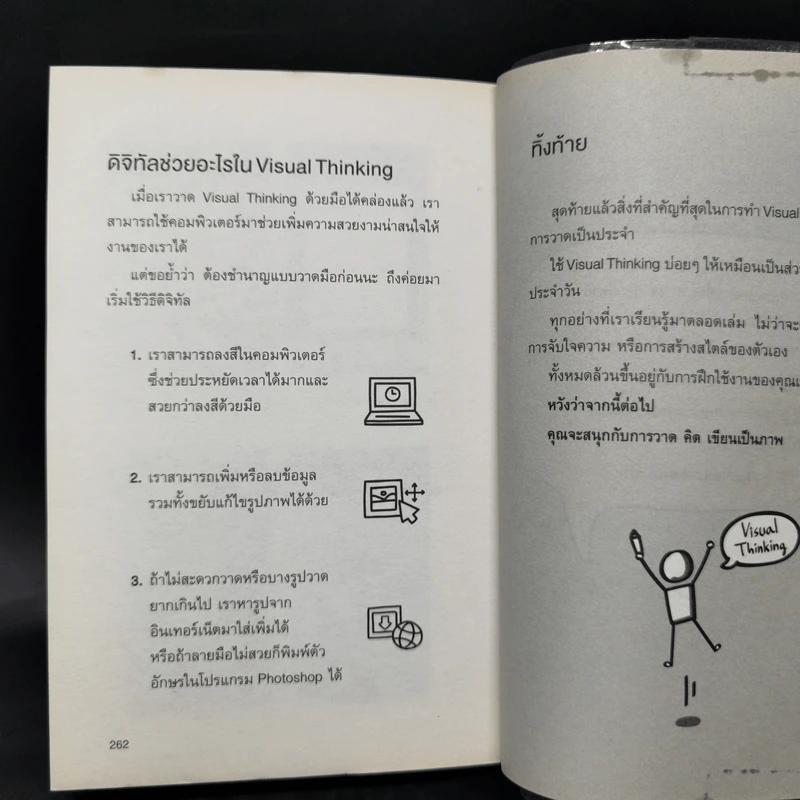 ดิจิทัลช่วยอะไรใน Visual Thinking
เมื่อเราวาด Visual Thinking ด้วยมือได้คล่องแล้ว เรา
สามารถใช้คอมพิวเตอร์มาช่วยเพิ่มความสวยงามน่าสนใจให้
งานของเราได้
แต่ขอย้ำว่า ต้องชำนาญแบบวาดมือก่อนนะ ถึงค่อยมา
เริ่มใช้วิธีดิจิทัล
1. เราสามารถลงสีในคอมพิวเตอร์
ซึ่งช่วยประหยัดเวลาได้มากและ
สวยกว่าลงสีด้วยมือ
2. เราสามารถเพิ่มหรือลบข้อมูล
รวมทั้งขยับแก้ไขรูปภาพได้ด้วย
3. ถ้าไม่สะดวกวาดหรือบางรูปวาด
ยากเกินไป เราหารูปจาก
อินเทอร์เน็ตมาใส่เพิ่มได้
หรือถ้าลายมือไม่สวยก็พิมพ์ตัว
อักษรในโปรแกรม Photoshop ได้
262
ทิ้งท้าย
สุดท้ายแล้วสิ่งที่สำคัญที่สุดในการทำ Visual
การวาดเป็นประจำ
ใช้ Visual Thinking บ่อยๆ ให้เหมือนเป็นส่วน
ประจำวัน
ทุกอย่างที่เราเรียนรู้มาตลอดเล่ม ไม่ว่าจะ
การจับใจความ หรือการสร้างสไตล์ของตัวเอง
ทั้งหมดล้วนขึ้นอยู่กับการฝึกใช้งานของคุณ
หวังว่าจากนี้ต่อไป
คุณจะสนุกกับการวาด คิด เขียนเป็นภาพ
Visual
Thinking